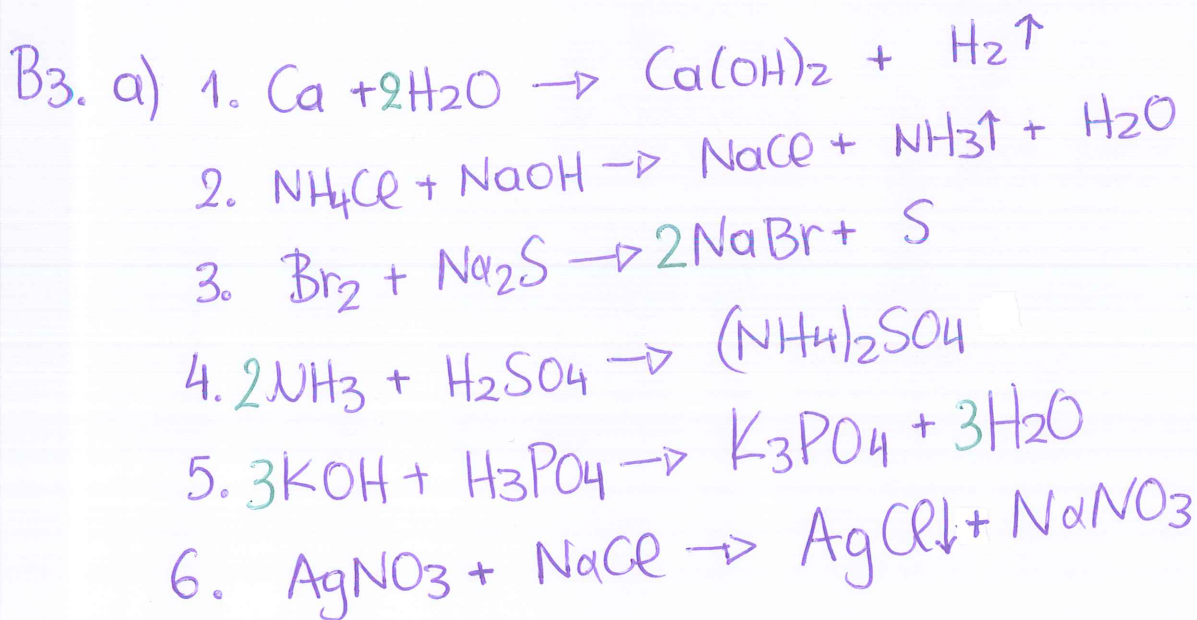 B3. a) 1. Ca + 2H2O → Ca(OH)2 + H2↑
2. NH4Cl + NaOH → NaCl + NH3↑ + H2O
3. Br2 + Na2S → 2NaBr + S
4. 2NH3 + H2SO4 → (NH4)2SO4
5. 3KOH + H3PO4 → K3PO4 + 3H2O
6. AgNO3 + NaCl → AgCl↓ + NaNO3